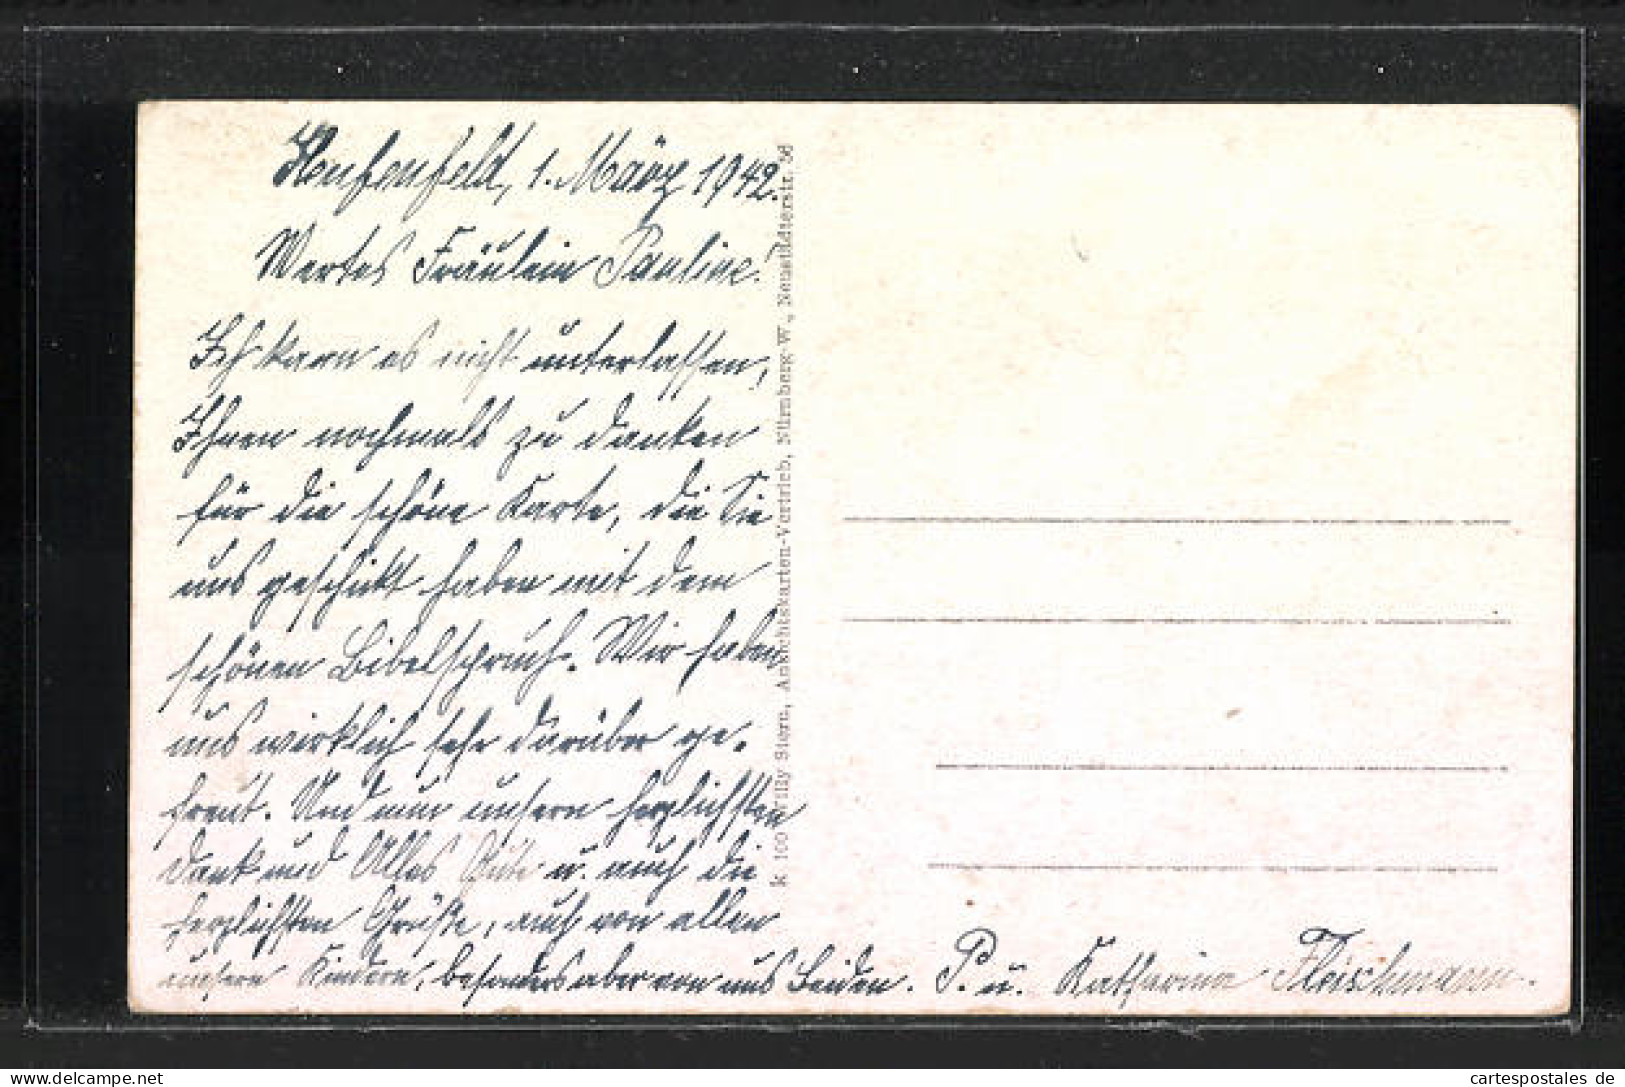 Henfenfeld, 1. März 1942.
Wertes Fräulein Pauline!
Ich kann es nicht unterlassen,
Ihnen nochmals zu danken
für die schöne Karte, die Sie
uns geschikt haben mit dem
schönen Bibelspruch. Wir haben
uns wirklich sehr darüber ge-
freut. Und nun unsern herzlichsten
Dank und Alles Gute u. auch die
herzlichsten Grüße, auch von allen
unsern Kindern, besonders aber von uns Beiden. P. u. Katharina Fleischmann.
K 100 Willy Stern, Ansichtskarten-Vertrieb, Nürnberg-W., Neustädterstr. 5d
delcampe.net
cartespostales de